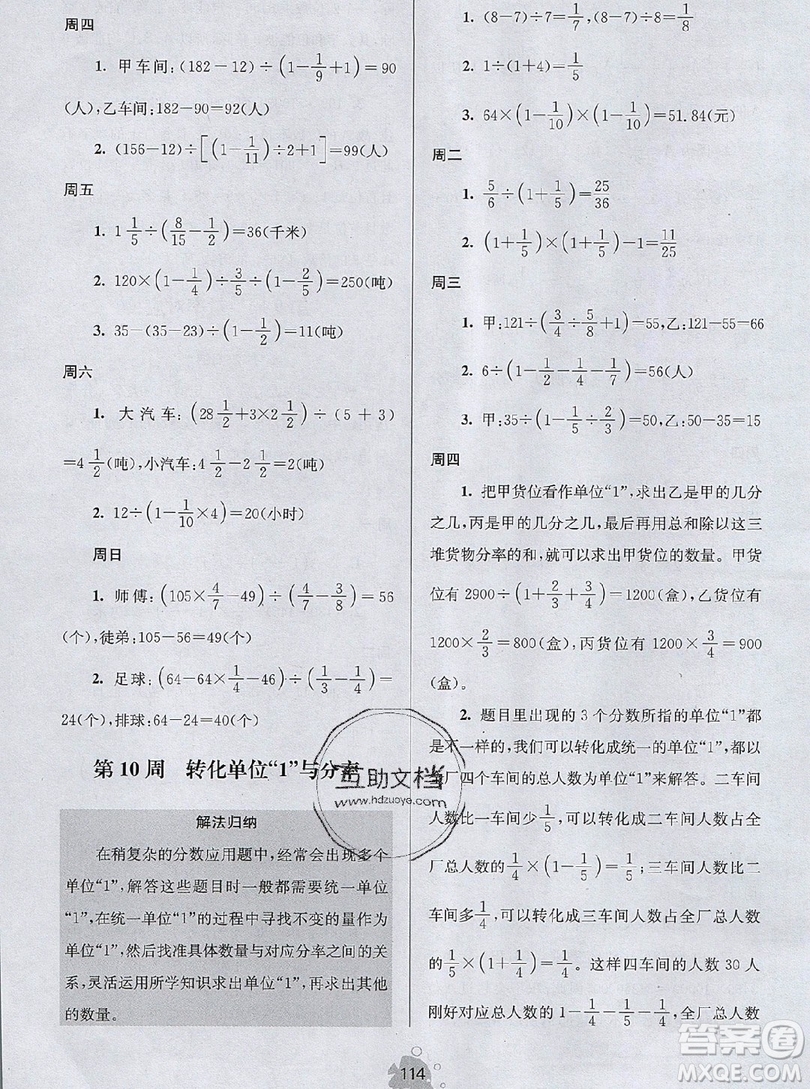 周四
1. 甲车间:(182-12)÷(1-1/9+1)=90
(人),乙车间:182-90=92(人)
2. (156-12)÷[(1-1/11)÷2+1]=99(人)
周五
1. 1 1/5÷(8/15-1/2)=36(千米)
2. 120×(1-1/4)÷3/5÷(1-2/5)=250(吨)
3. 35-(35-23)÷(1-1/2)=11(吨)
周六
1. 大汽车:(28 1/2+3×2 1/2)÷(5+3)
=4 1/2(吨),小汽车:4 1/2-2 1/2=2(吨)
2. 12÷(1-1/10×4)=20(小时)
周日
1. 师傅:(105×4/7-49)÷(4/7-3/8)=56
(个),徒弟:105-56=49(个)
2. 足球:(64-64×1/4-46)÷(1/3-1/4)=
24(个),排球:64-24=40(个)
第10周 转化单位“1”与分率
解法归纳
在稍复杂的分数应用题中,经常会出现多个
单位“1”,解答这些题目时一般都需要统一单位
“1”,在统一单位“1”的过程中寻找不变的量作为
单位“1”,然后找准具体数量与对应分率之间的关
系,灵活运用所学知识求出单位“1”,再求出其他
的数量。
1. (8-7)÷7=1/7,(8-7)÷8=1/8
2. 1÷(1+4)=1/5
3. 64×(1-1/10)×(1-1/10)=51.84(元)
周二
1. 5/6÷(1+1/5)=25/36
2. (1+1/5)×(1+1/5)-1=11/25
周三
1. 甲:121÷(3/4÷5/8+1)=55,乙:121-55=66
2. 6÷(1-1/2-1/4-1/7)=56(人)
3. 甲:35÷(1-1/5÷2/3)=50,乙:50-35=15
周四
1. 把甲货位看作单位“1”,求出乙是甲的几分
之几,丙是甲的几分之几,最后再用总和除以这三
堆货物分率的和,就可以求出甲货位的数量。甲货
位有2900÷(1+2/3+3/4)=1200(盒),乙货位有
1200×2/3=800(盒),丙货位有1200×3/4=900
(盒)。
2. 题目里出现的3个分数所指的单位“1”都
是不一样的,我们可以转化成统一的单位“1”,把
全厂四个车间的总人数为单位“1”来解答。二车间
人数比一车间少1/5,可以转化成二车间人数占全
厂总人数的1/4×(1-1/5)=1/5;三车间人数比二
车间多1/4,可以转化成三车间人数占全厂总人数
的1/5×(1+1/4)=1/4。这样四车间的人数30人
刚好对应总人数的1-1/4-1/5-1/4,全厂总人数
114
互助文档
www.hdzuoye.com
答案圈
MXQE.COM